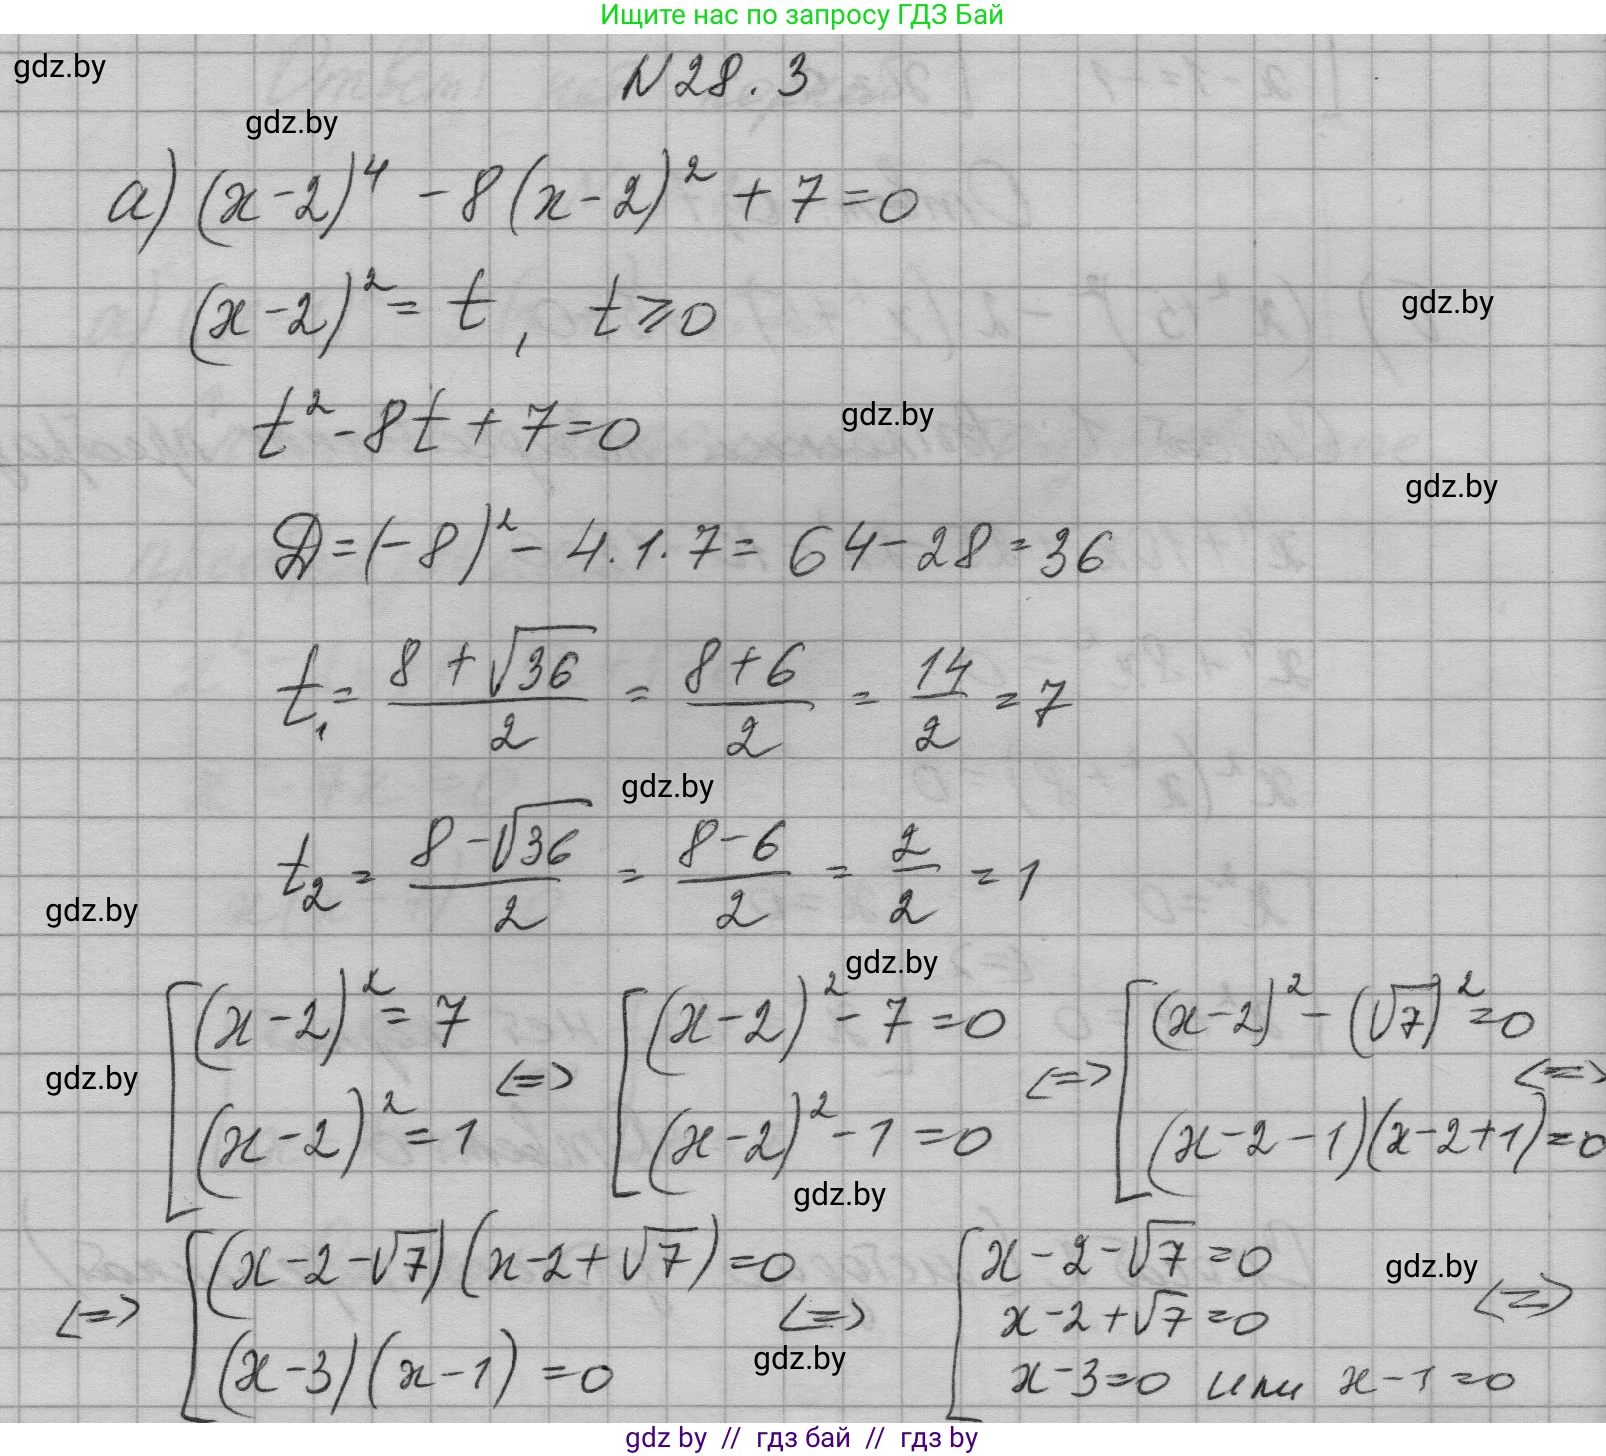 Ищите нас по запросу ГДЗ Бай
gdz.by
N28.3
gdz.by
а) (x-2)⁴ - 8(x-2)² + 7 = 0
(x-2)² = t, t ⩾ 0
gdz.by
t² - 8t + 7 = 0
gdz.by
gdz.by
D = (-8)² - 4·1·7 = 64 - 28 = 36
t₁ = (8 + √36)/2 = (8+6)/2 = 14/2 = 7
gdz.by
t₂ = (8 - √36)/2 = (8-6)/2 = 2/2 = 1
gdz.by
gdz.by
[ (x-2)² = 7 <=> [ (x-2)² - 7 = 0 <=> [ (x-2)² - (√7)² = 0 <=>
gdz.by
(x-2)² = 1 (x-2)² - 1 = 0 (x-2-1)(x-2+1) = 0
gdz.by
<=> [ (x-2-√7)(x-2+√7) = 0 <=> [ x-2-√7 = 0 <=>
gdz.by
x-2+√7 = 0
gdz.by
(x-3)(x-1) = 0 x-3=0 или x-1=0
gdz by // гдз бай // гдз by